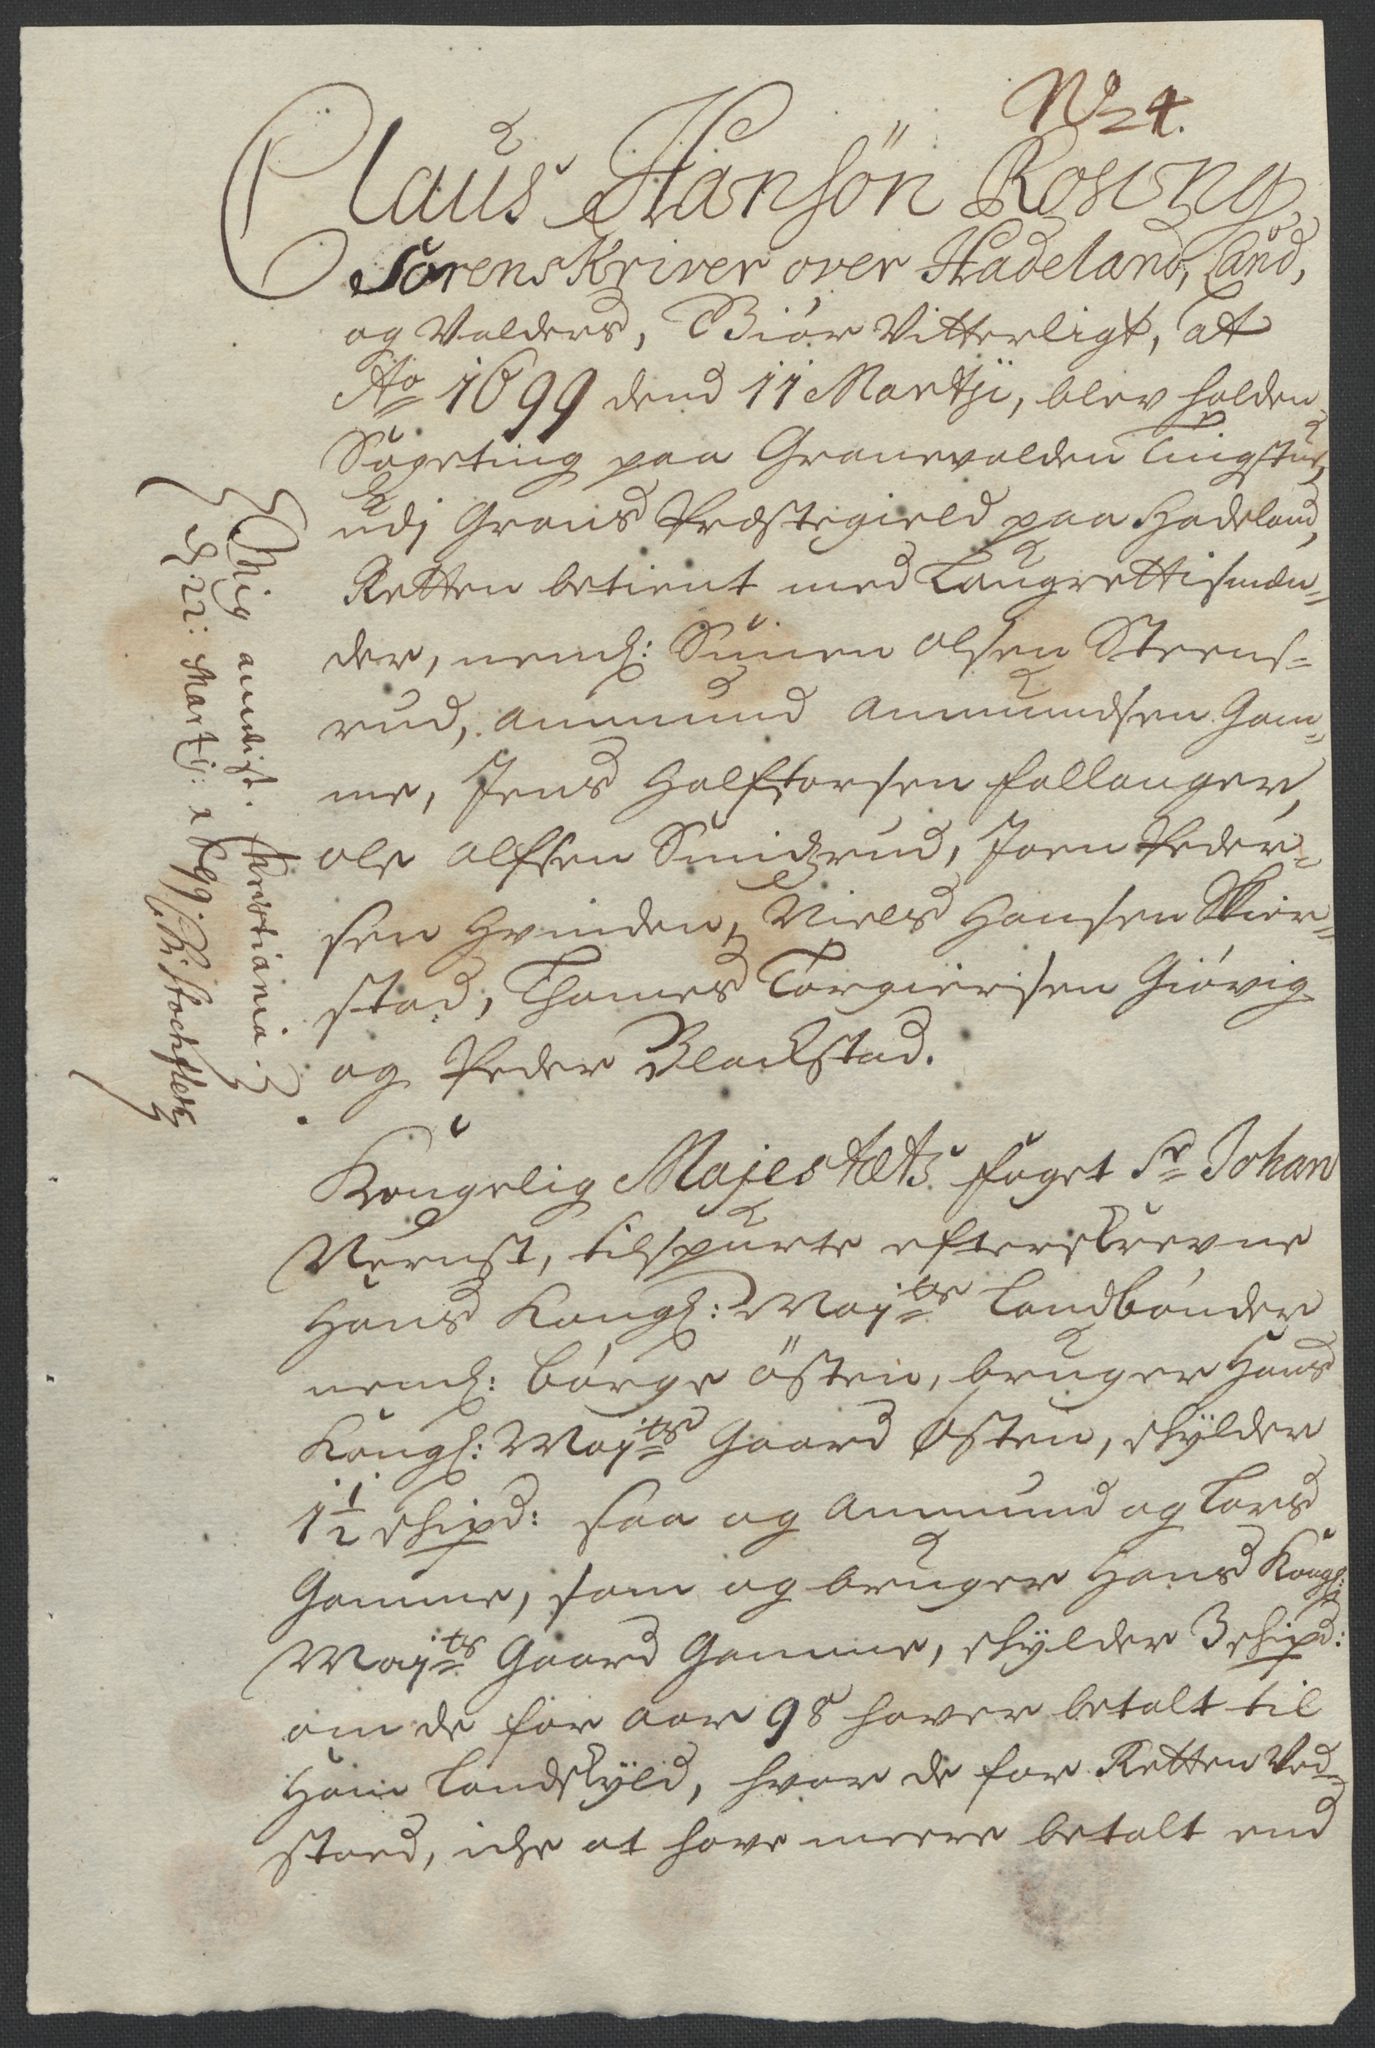 No 4.
Claus Hansøn Rosing
Sorenskriver over Hadeland, Land,
og Valders, Giør Vitterligt, at
Ao 1699 dend 11 Martji, blev holden
Sageting paa Granevolden Tingstue,
udj Grans Præstegield paa Hadeland,
Retten betient med Laugrettismæn-
der, neml: Simen Olsen Steens-
rud, Ammund Ammundsen Gam-
me, Jens Halftorsen Fallanger,
Ole Olfsen Smidzrud, Joen Peder-
sen Hvinden, Niels Hansen Skier-
stad, Thomes Torgiersen Giøvig
og Peder Blackstad.
Kongelig Majestætz Foget Sr Johan
Wernst, tilspurte efterskrevne
Hans Kongl: Mayts Landbønder
neml: Børge Østen, bruger Hans
Kongl: Mayts Gaard Østen, skylder
1 1/2 skipd: saa og Ammund og Lars
Gamme, som og bruger Hans Kongl:
Mayts Gaard Gamme, skylder 3 skipd:
om de for aar 98 haver betalt til
Ham Landskyld, hvor de for Retten Ved-
stoed, iche at have meere betalt end
Mig anvist. Christiania.
d. 22: Martij: 1699. H: Stockfleth